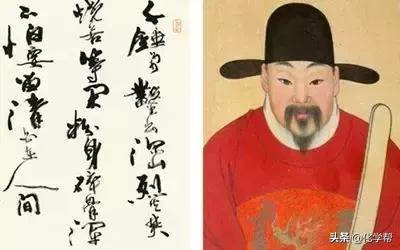 千錘万鑿出深山烈火焚
燒若等闲粉身碎骨渾
不怕要留清白在人间
头条 @化学帮